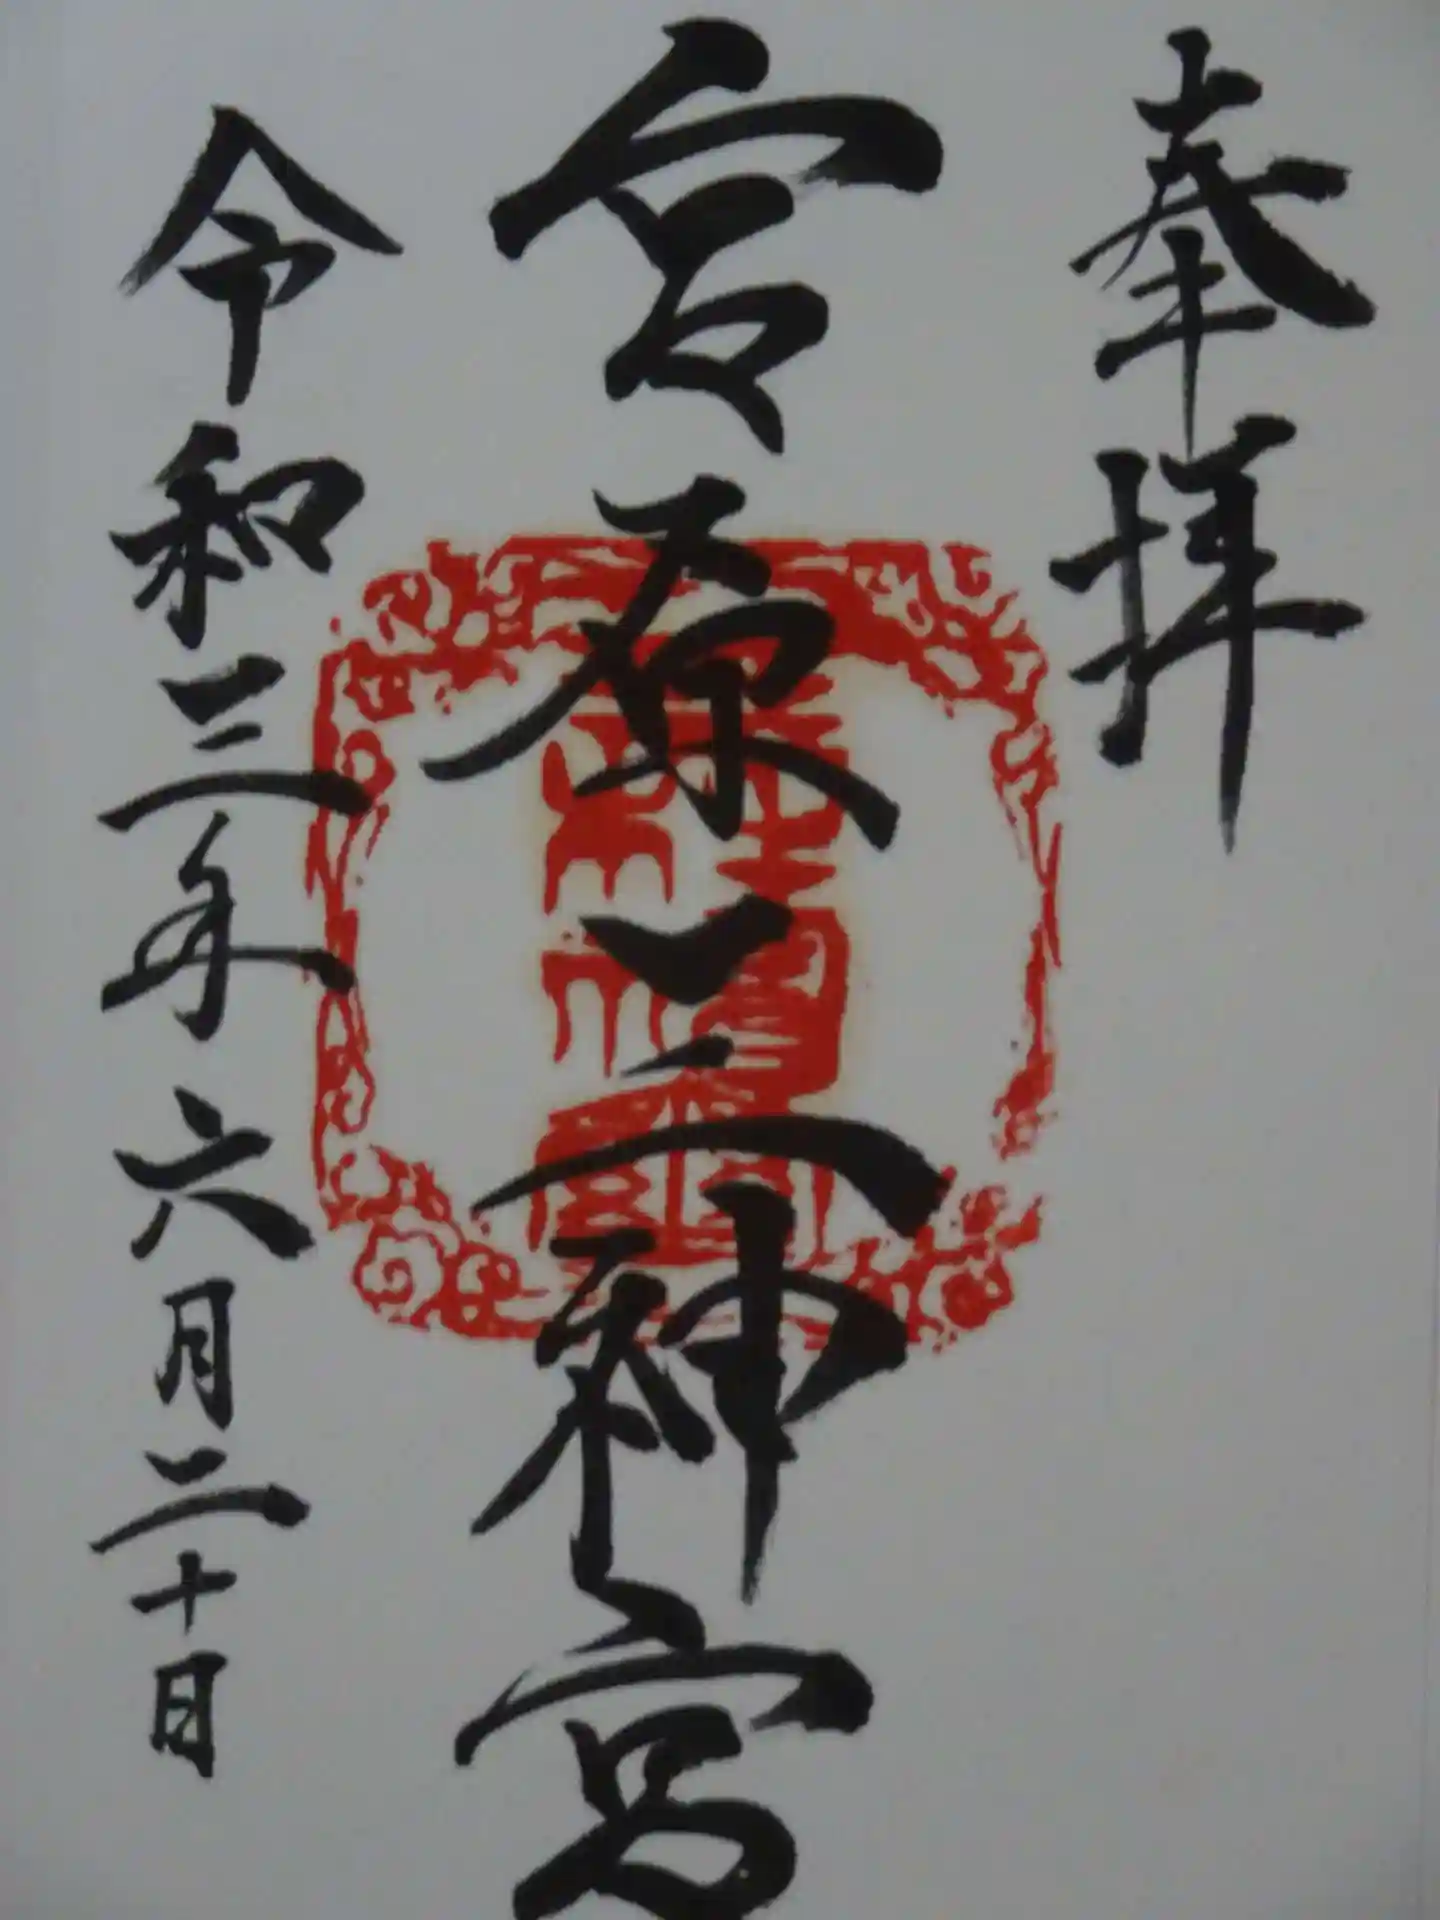 奉拝
宮原三神宮
令和三年六月二十日